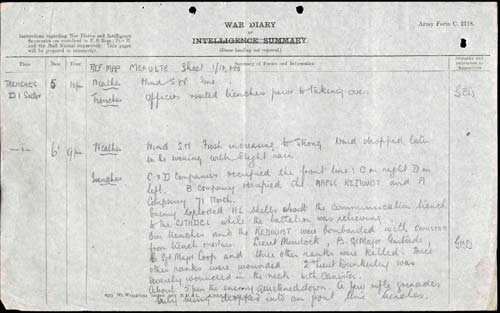 WAR DIARY
or
INTELLIGENCE SUMMARY.
(Erase heading not required.)
Army Form C. 2118.
Instructions regarding War Diaries and Intelligence
Summaries are contained in F. S. Regs., Part II.
and the Staff Manual respectively. Title pages
will be prepared in manuscript.
Place Date Hour Summary of Events and Information Remarks and references to Appendices
REF MAP MEAULTE Sheet
TRENCHES 5 Weather Wind SW fine.
D1 Sector Trenches Officers visited trenches prior to taking over.
6 9pm Weather Wind SW Fresh increasing to strong. Wind dropped late
in the evening with slight rain.
Trenches C & D Companies occupied the front line: C on right D on
left. B company occupied the MAPLE REDOUBT and A
Company 71 North.
Enemy exploded HE shells about the communication trench
to the CITADEL while the battalion was relieving.
Our trenches and the REDOUBT were bombarded with CANISTERS
from trench mortars. Lieut Murdock, B. Sjt Major
Sjt Major Coop and three other ranks were killed. Three
other ranks were wounded. 2nd Lieut Dunkerley was
severely wounded in the neck with Canister.
About 5pm the enemy quickened down. A few rifle grenades
only being dropped into our front line trenches.